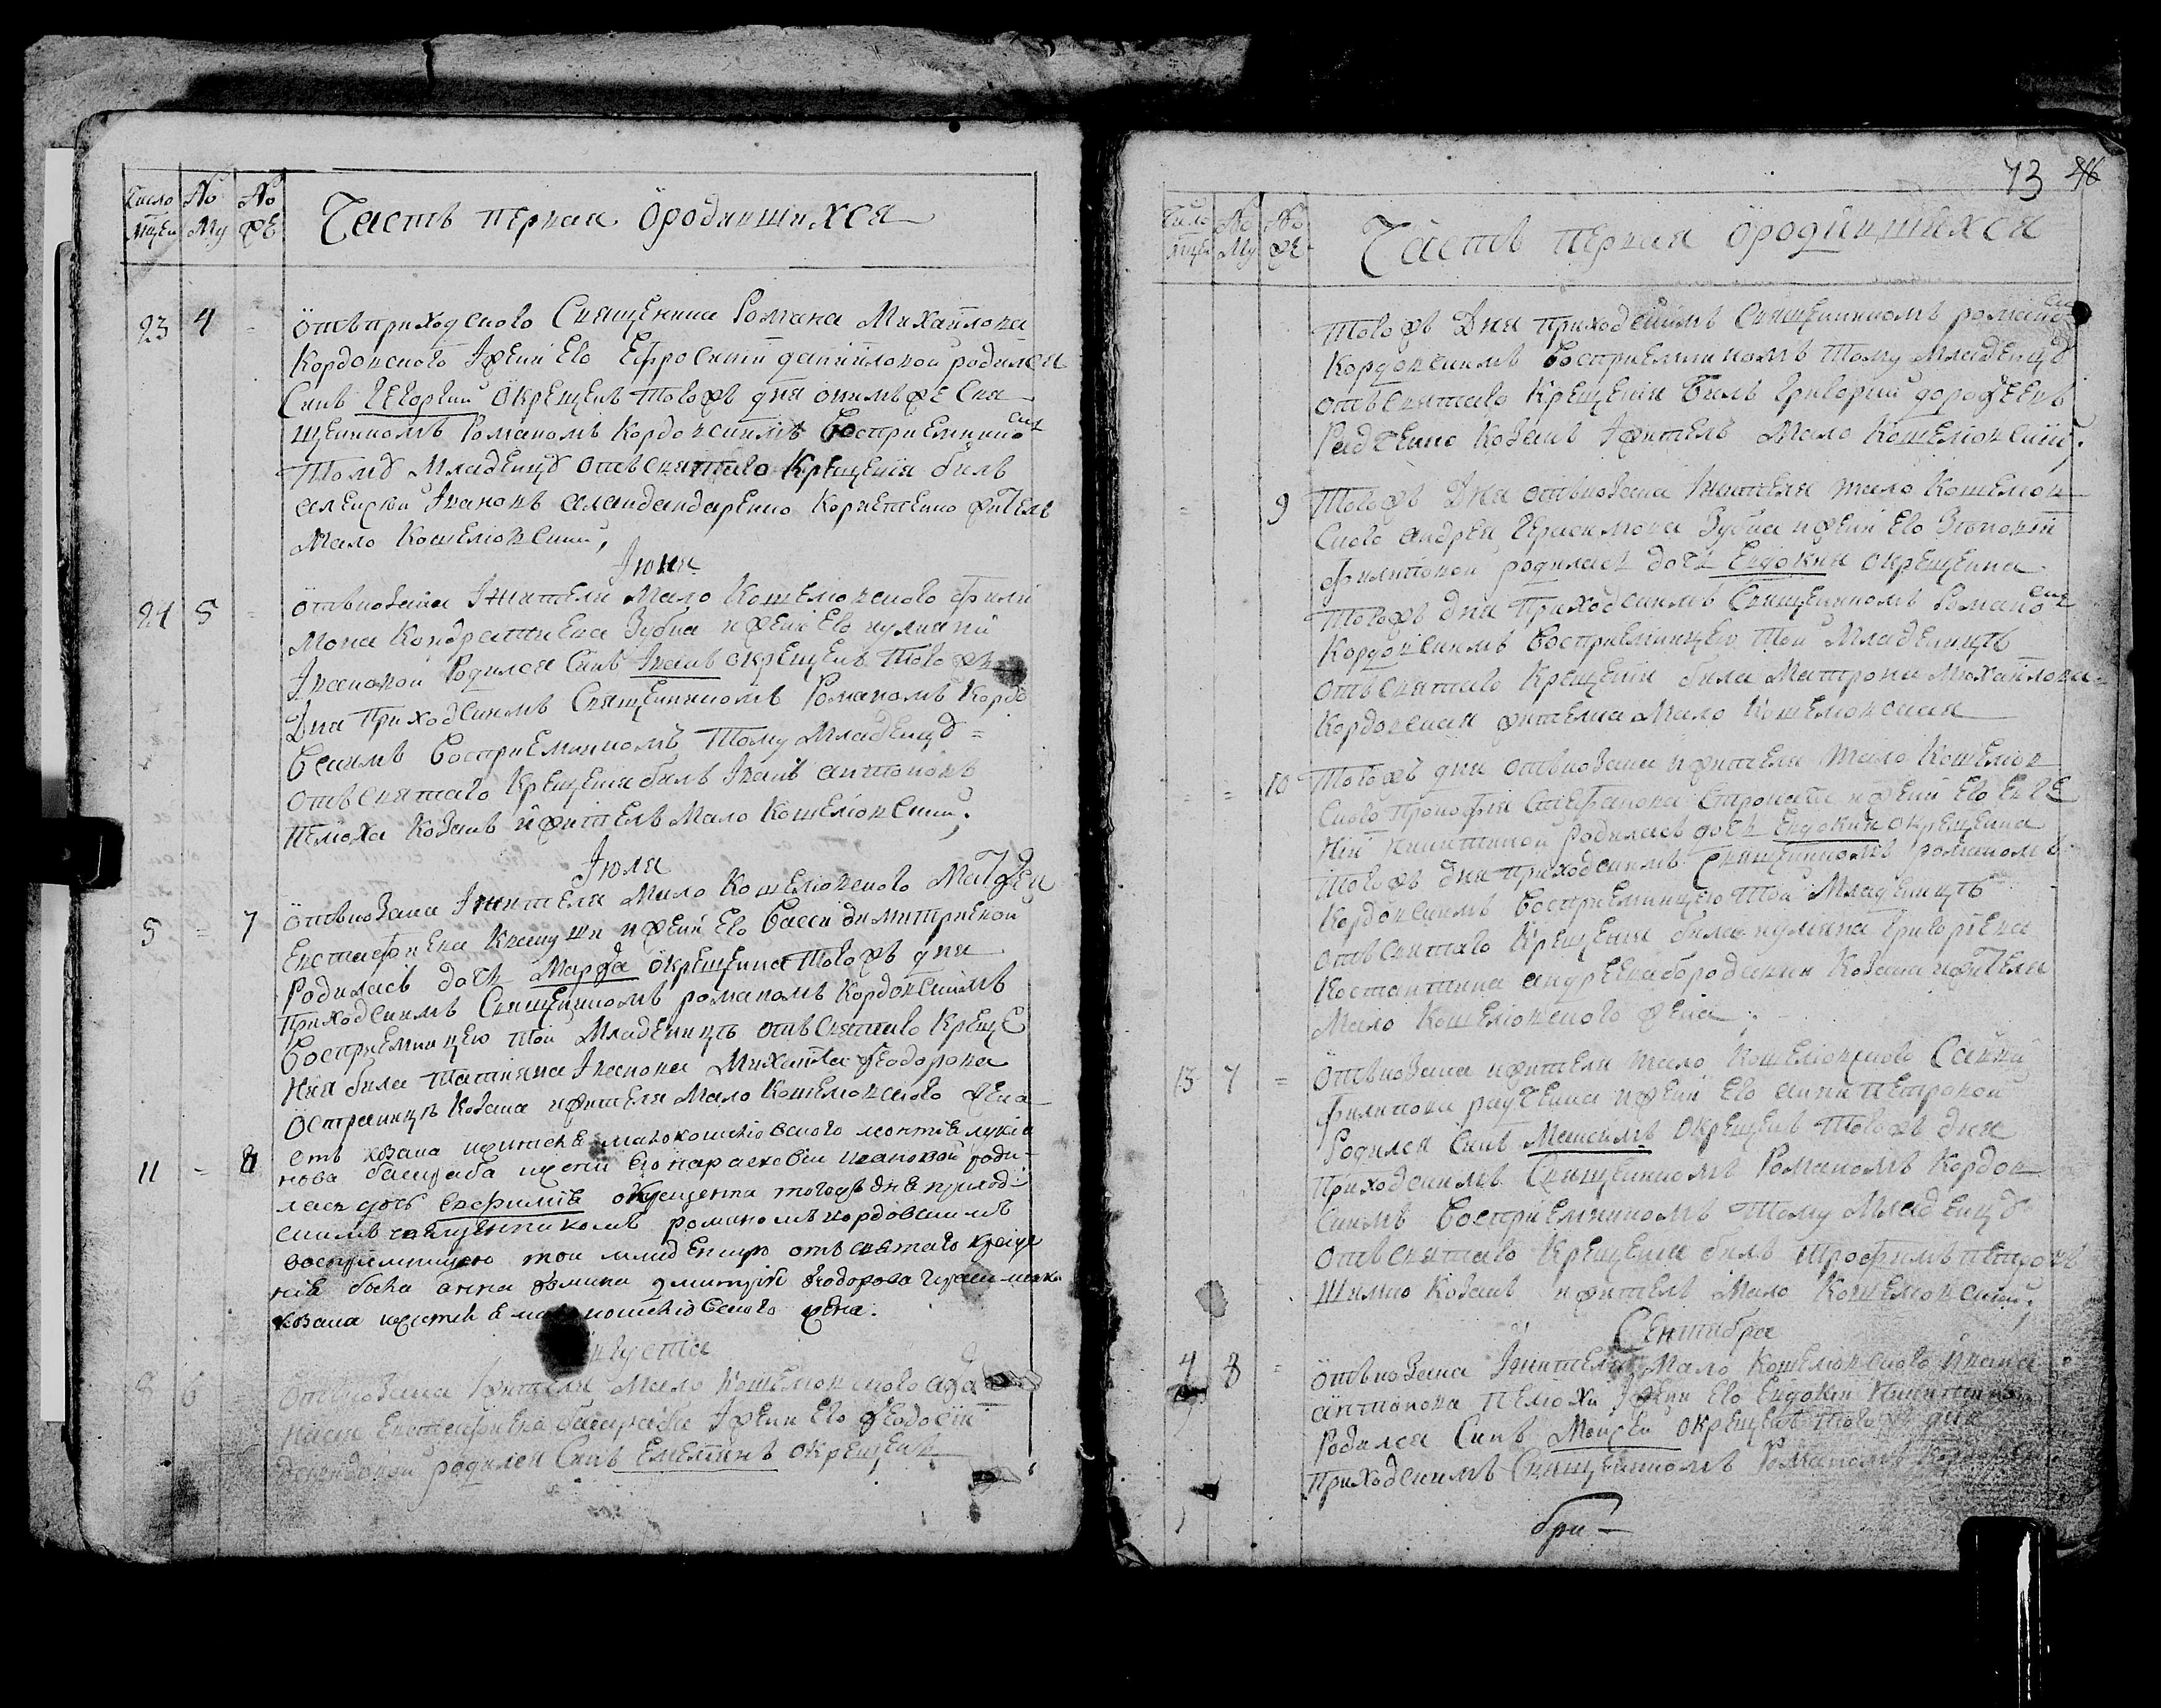 Число
мцей
No
Му
No
же
Часть первая ородившихся
23 4 =
отъ приходского Священика Романа Михайлова
Кордовского Іжени Его Ефросинїи данїиловой родился
Синъ Георгий окрещенъ тогожъ дня онимъже Свя
щенникомъ Романомъ Кордовскимъ Восприемнико
Тому Младенцу отъ святаго Крещенія билъ
алексій Ивановъ Корнетенко жителъ
Мало Кошелювский,
Іюня
24 5 =
отъ козака Ижителя Мало Кошелювского Фили
мона Кондратиева Зубка ижени Его иулиянїи
Івановой Родился Синъ Іванъ окрещенъ тогожъ
Дня приходскимъ Священникомъ Романомъ Кордо
вскимъ Восприемникомъ Тому Младенцу =
отъ святаго Крещенія билъ Іванъ антоновъ
Пелюха Козакъ ижителъ Мало Кошелювский;
Іюля
5 = 7
отъ козака Ижителя Мало Кошелювского Матфея
Евстафиева Квакуши ижени Его Васси димитриевой
Родилась дочъ Марфа окрещенна тогожъ дня
приходскимъ Священникомъ романомъ Кордовскимъ
Восприемницею той Младенице отъ святаго Креще
нія била татияна Іванова Михаила феодорова
остраницѣ Козака ижителя Мало Кошелювского жена
11 = 8
отъ козака ижителя малокошелювского леонтія лукія
нова башраба ижени его параскевіи ивановой роди-
лась дочъ Евфимія окрещенна тогожъ дня приход-
скимъ священникомъ романомъ кордовскимъ
восприемницею той младеницѣ отъ святаго креще
нія била анна фомина димитрія феодорова
козака ижителя малокошелювского жена.
августа
8 6
отъ козака Ижителя Мало Кошелювского афа
насия Евстафиева башраба Іжени Его феодосїи
родился Синъ Емелианъ окрещенъ
73 46
Число
мцей
No
Му
No
же
Часть первая ородившихся
тогожъ Дня приходскимъ Священникомъ романо
Кордовскимъ Восприемникомъ тому Младенцу
отъ святаго Крещенія билъ Григорий дорофеевъ
Радченко Козакъ Іжителъ Мало Кошелювский;
= 9
тогожъ Дня отъ козака Ижителя мало Кошелюв
ского андрея Герасимова Зубка ижени Его Зѣновїи
филиповой родиласъ дочъ Евдокия окрещенна
тогожъ дня приходскимъ Священникомъ Романо
Кордовскимъ Восприемницею той Младенице
отъ святаго Крещенія била Матрона Михаилова
Кордовская жителка Мало Кошелювская
= = 10
тогожъ дня отъ козака ижителя мало Кошелюв
ского Прокофія Стефанова ижени Его Евге
нїи никитиной родилась дочъ Евдокия окрещенна
тогожъ дня приходскимъ Священникомъ романомъ
Кордовскимъ Восприемницею той Младеницѣ
отъ святаго Крещенія била иулияна Григориева
Костантина андреева бородавки Козака ижителя
Мало Кошелювского жена;
13 7 =
отъ козака ижителя мало Кошелювского Саввы
филипова радченка ижени Его анни петровой
Родился Синъ Максимъ окрещенъ тогожъ дня
приходскимъ Священникомъ Романомъ Кордов
скимъ Восприемникомъ тому Младенцу
отъ святаго Крещенія билъ трофимъ петровъ
Шимко Козакъ ижителъ Мало Кошелювский;
Сентября
4 8 =
отъ козака Ижителя Мало Кошелювского ивана
антонова пелюхи Іжени Его Евдокїи
Родился Синъ Моисей окрещенъ тогожъ дня
приходскимъ Священникомъ Романомъ Кордовски